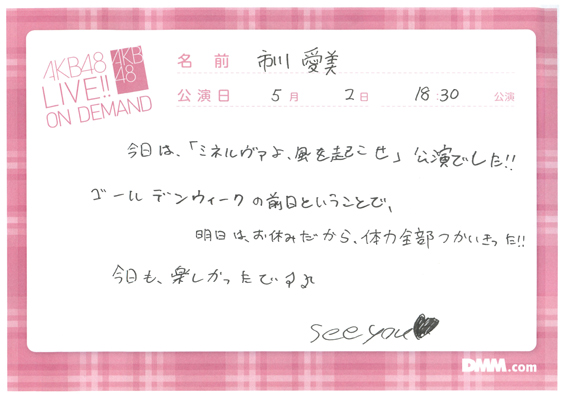 AKB48
LIVE!!
ON DEMAND
AKB
48
名前 市川 愛美
公演日 5月 2日 18:30 公演
今日は、「ミネルヴァよ、風を起こせ」公演でした!!
ゴールデンウィークの前日ということで、
明日は、お休みだから、体力全部つかいきった!!
今日も、楽しかったです♪
see you♥
DMM.com